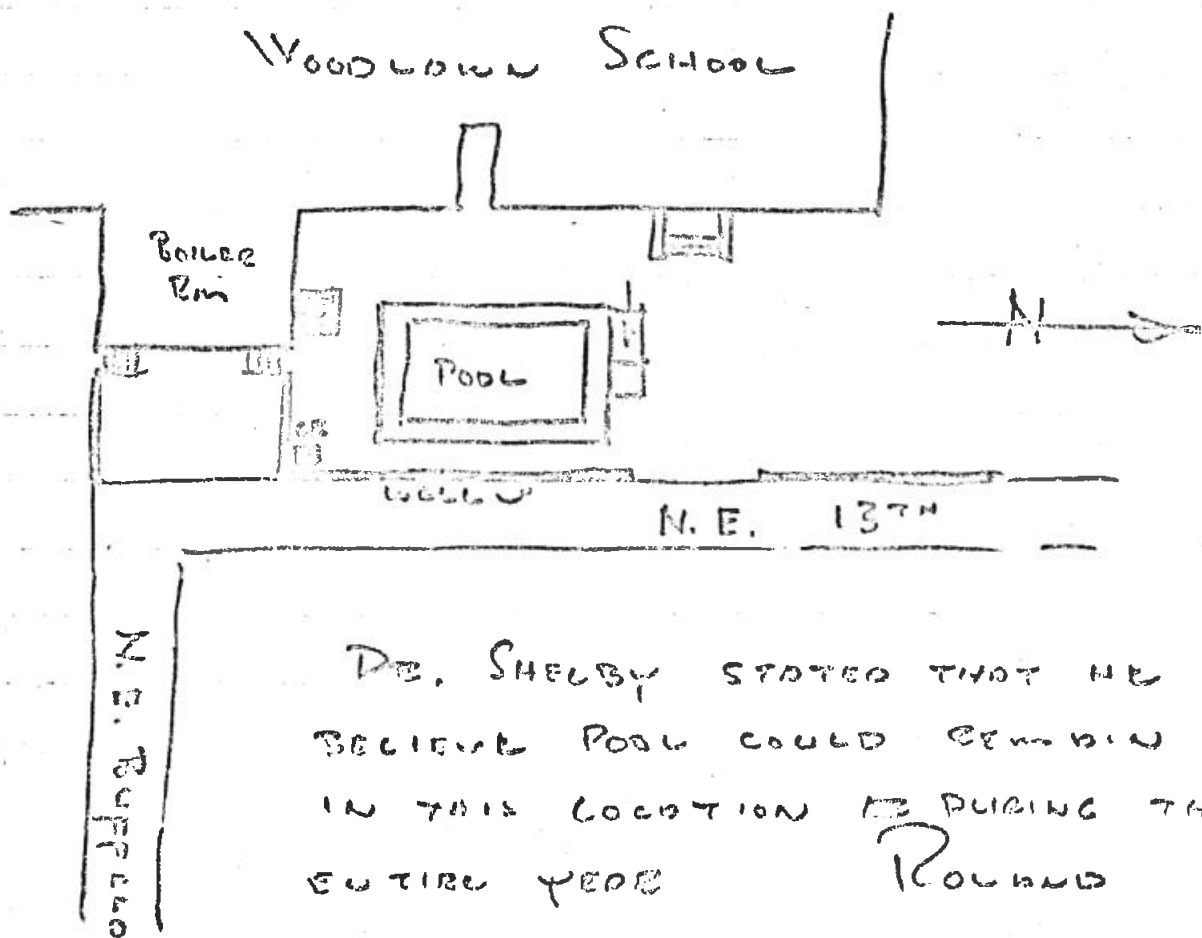 WOODLAWN SCHOOL
BOILER
RM
POOL
N
N.E. 13TH
N.E. BUFFALO
DR. SHELBY STATED THAT HE
BELIEVE POOL COULD REMAIN
IN THIS LOCATION DURING TH
ENTIRE YEAR ROLAND